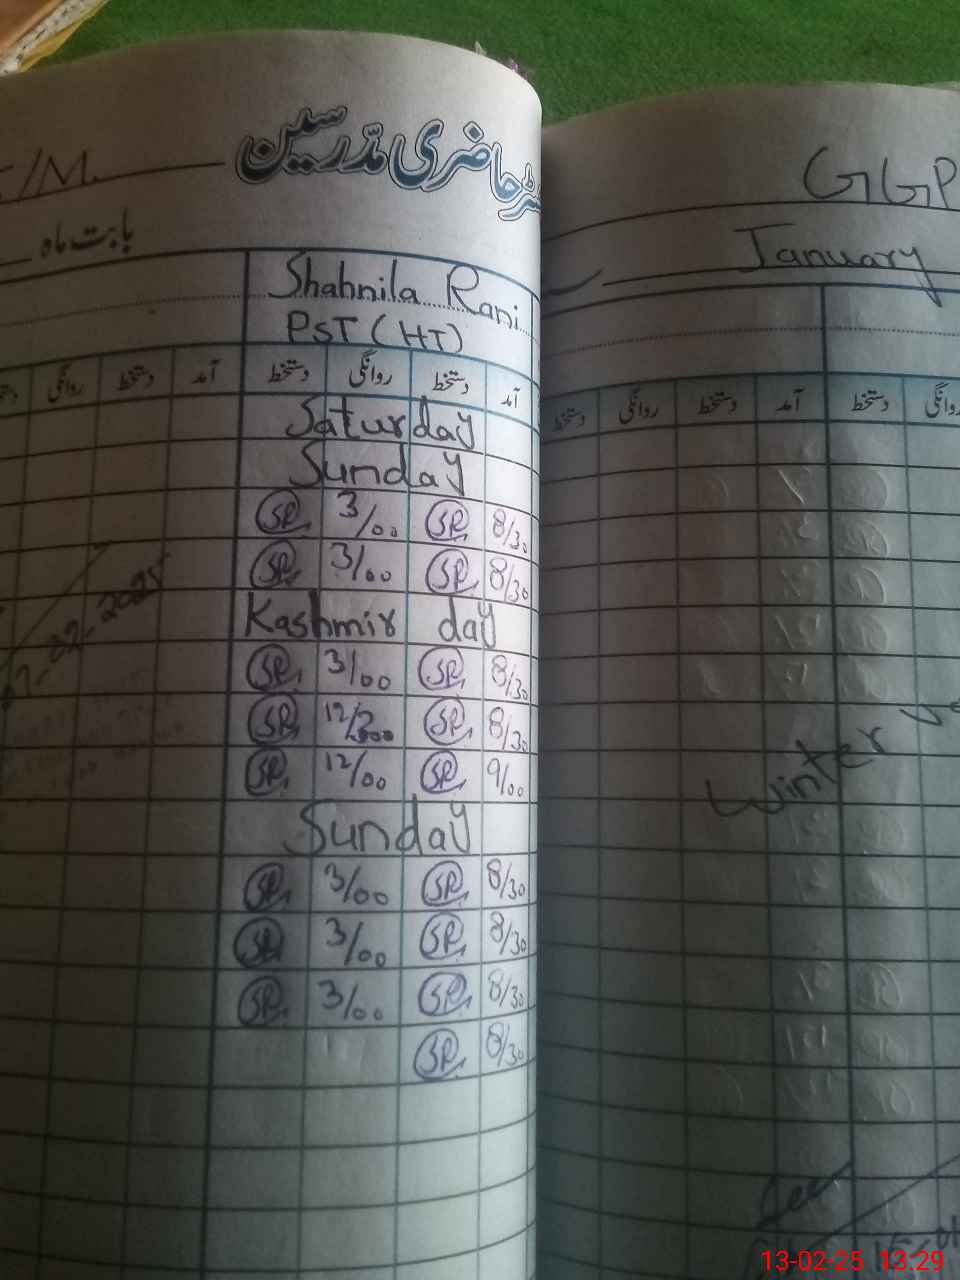 حاضری مدّرسین
/M.
بابت ماہ
Shahnila Rani
PST (HT)
آمد دستخط روانگی دستخط آمد دستخط روانگی
Saturday
Sunday
8/30 SR 3/00 SR
8/30 SR 3/00 SR
Kashmir day
8/30 SR 3/00 SR
8/30 SR SR
9/00 SR 12/00 SR
Sunday
8/30 SR 3/00 SR
8/30 SR 3/00 SR
8/30 SR 3/00 SR
8/30 SR
GGP
January
روانگی دستخط آمد دستخط روانگی دستخط
Winter
13-02-25 13.29